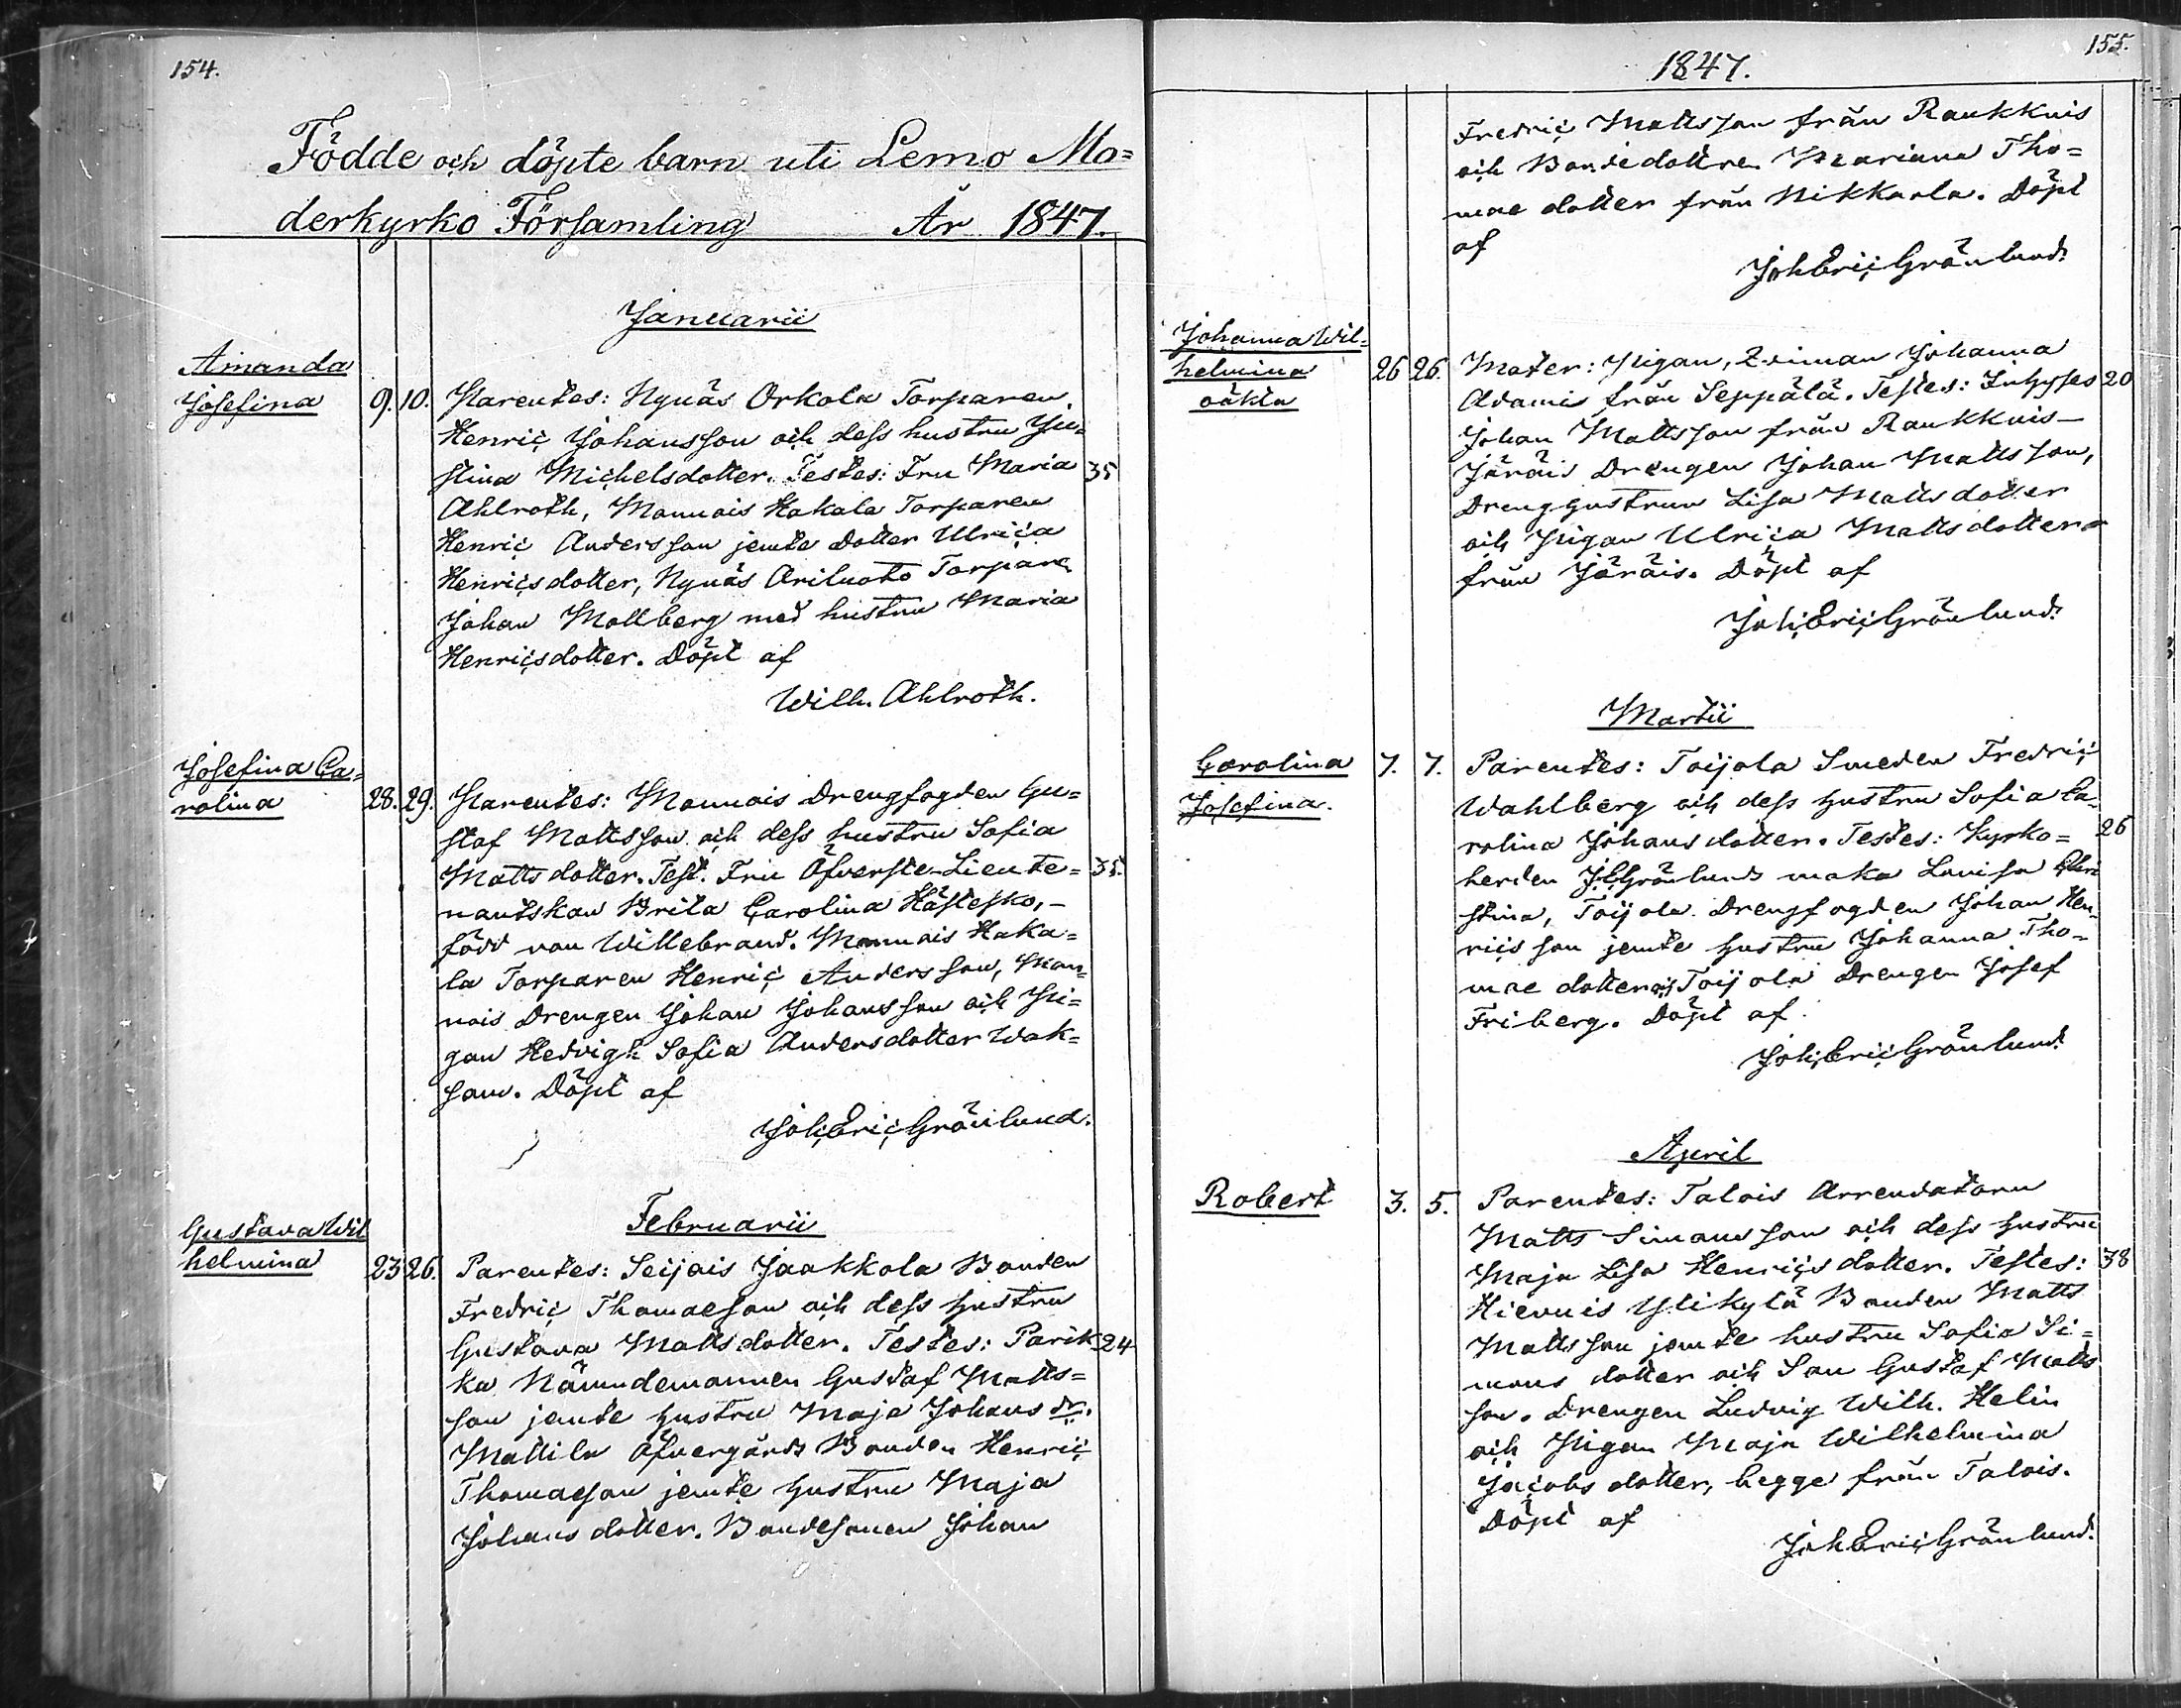 154.
Födde och döpte barn uti Lemo Mo=
derkyrko Församling År 1847.
Januarii
Amanda
Josefina 9. 10. Parentes: Nynäs Orkola Torparen
Henric Johansson och dess hustru Ju=
stina Michelsdotter. Testes: Fru Maria 35
Ahlroth, Monnois Hakala Torparen
Henric Andersson jemte dotter Ulrica
Henricsdotter, Nynäs Ariluoto Torparen
Johan Mollberg med hustru Maria
Henricsdotter. Döpt af
Wilh. Ahlroth.
Josefina Ca=
rolina 28. 29. Parentes: Monnois Drengfogden Gu=
staf Mattsson och dess hustru Sofia
Matts dotter. Test. Fru Öfverste-Lieute= 35.
nantskan Brita Carolina Hästesko,-
född von Willebrand. Monnois Haka=
la Torparen Henric Andersson, Mon=
nois Drengen Johan Johansson och Pi=
gan Hedvigh Sofia Andersdotter Wak=
sam. Döpt af
Joh: Eric Grönlund.
Februarii
Gustava Wil
helmina 23 26. Parentes: Seijais Jaakkola Bonden
Fredric Thomaeson och dess hustru
Gustava Matts dotter. Testes: Parik 24
ka Nämndemannen Gustaf Matts=
son jemte hustru Maja Johans dr.
Mattila Öfvergårds Bonden Henric
Thomaeson jemte hustru Maja
Johans dotter. Bondesonen Johan
155.
1847.
Fredric Mattsson från Raukkuis
och Bondedottren Mariana Tho=
mae dotter från Nikkarla. Döpt
af
Joh Eric Grönlund.
Johanna Wil=
helmina 26 26. Mater: Pigan, Johanna
oäkta Adami från Seppälä. Testes: Inhyses 20
Johan Mattsson från Raukkuis-
Järäis Drengen Johan Mattsson,
Drenghustrun Lisa Matts dotter
och Pigan Ulrica Matts dotter
från Järäis. Döpt af
Joh: Eric Grönlund.
Martii
Carolina 7. 7. Parentes: Toijola Smeden Fredric
Josefina. Wahlberg och dess hustru Sofia Ca=
rolina Johans dotter. Testes: Kyrko= 26
herden J E Grönlunds maka Lovisa Chri
stina, Toijola Drengfogden Johan Hen=
rics son jemte hustru Johanna Tho=
mae dotter och Toijola Drengen Josef
Friberg. Döpt af
Joh: Eric Grönlund.
April
Robert 3. 5. Parentes: Talois Arrendatorn
Matts Simonsson och dess hustru
Maja Lisa Henrics dotter. Testes: 38
Hievuis Ylikylä Bonden Matts
Mattsson jemte hustru Sofia Si=
mons dotter och Son Gustaf Matts
son. Drengen Ludvig Wilh. Helin
och Pigan Maja Wilhelmina
Jacobs dotter, begge från Talois.
Döpt af
Joh Eric Grönlund.